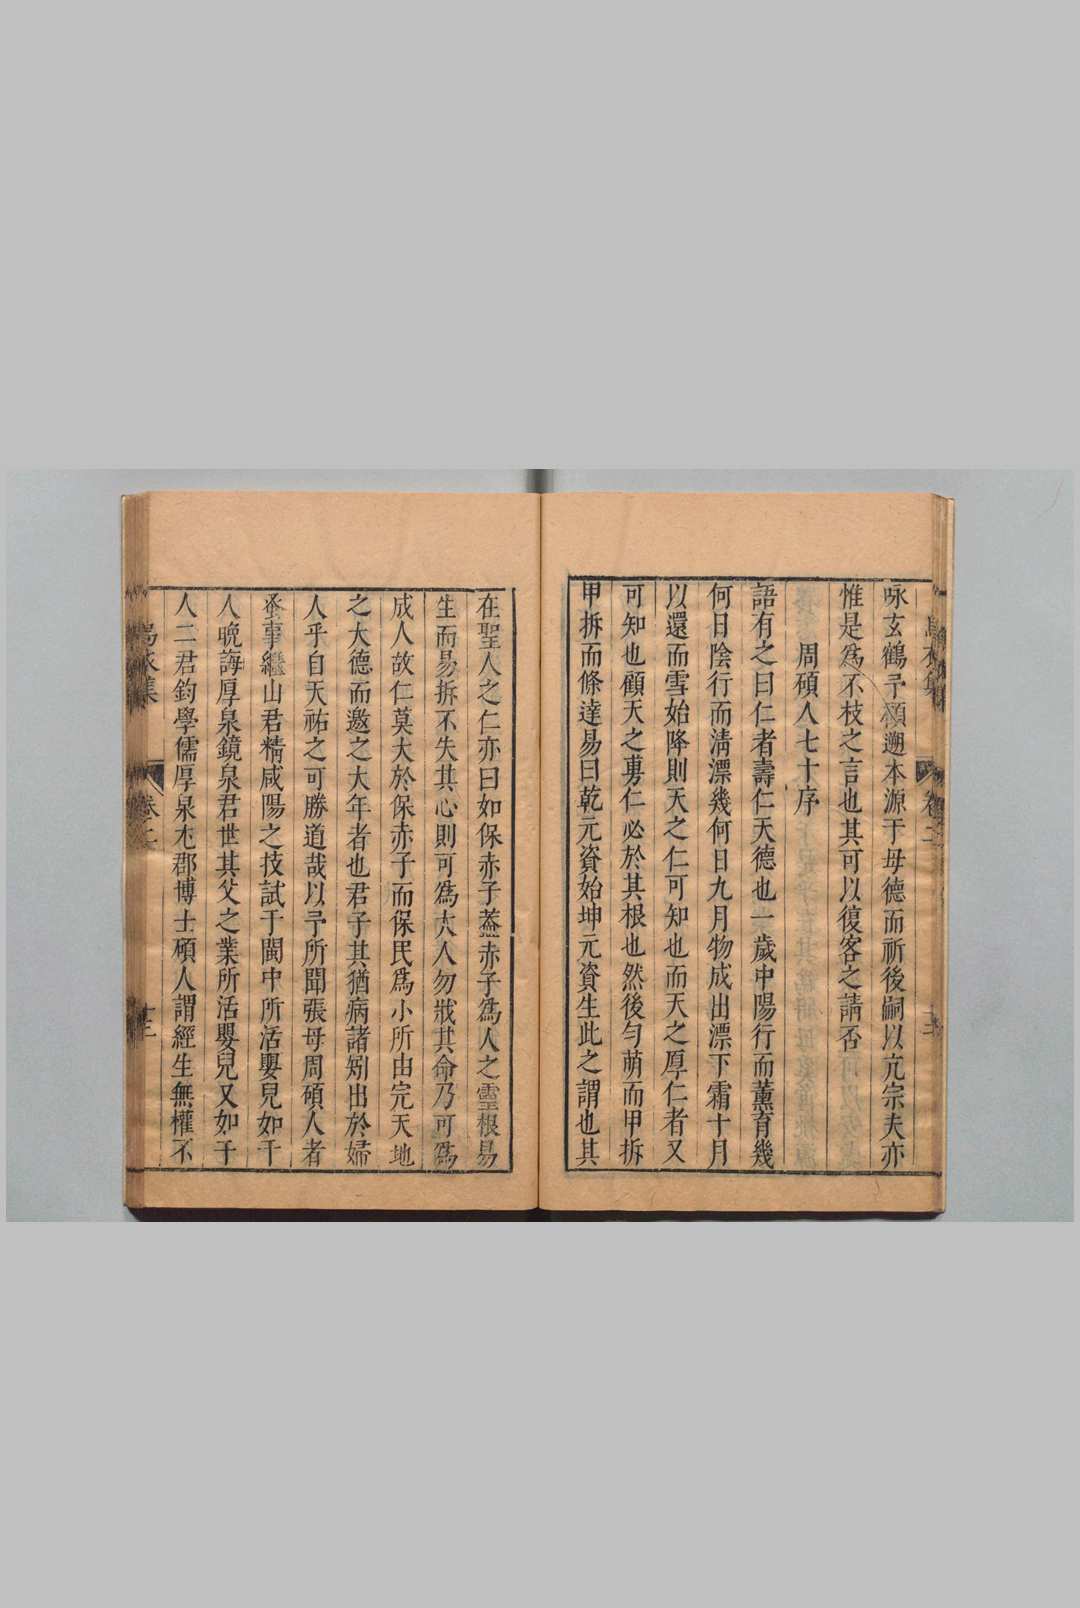 咏玄鶴予願遡本源于母德而祈後嗣以亢宗夫亦
惟是為不枝之言也其可以復客之請否
周碩人七十序
語有之曰仁者壽仁天德也一歲中陽行而薰育幾
何日陰行而淸漂幾何日九月物成出漂下霜十月
以還而雪始降則天之仁可知也而天之厚仁者又
可知也顧天之旉仁必於其根也然後勻萌而甲拆
甲拆而條達易曰乾元資始坤元資生此之謂也其
在聖人之仁亦曰如保赤子葢赤子為人之靈根易
生而易拆不失其心則可為大人勿戕其命乃可為
成人故仁莫大於保赤子而保民為小所由完天地
之大德而邀之大年者也君子其猶病諸矧出於婦
人乎自天祐之可勝道哉以予所聞張母周碩人者
蚤事繼山君精咸陽之技試于閩中所活嬰兒如干
人晚誨厚泉鏡泉君世其父之業所活嬰兒又如干
人二君鈞學儒厚泉尤郡博士碩人謂經生無權不
烏衣集
卷二
十二